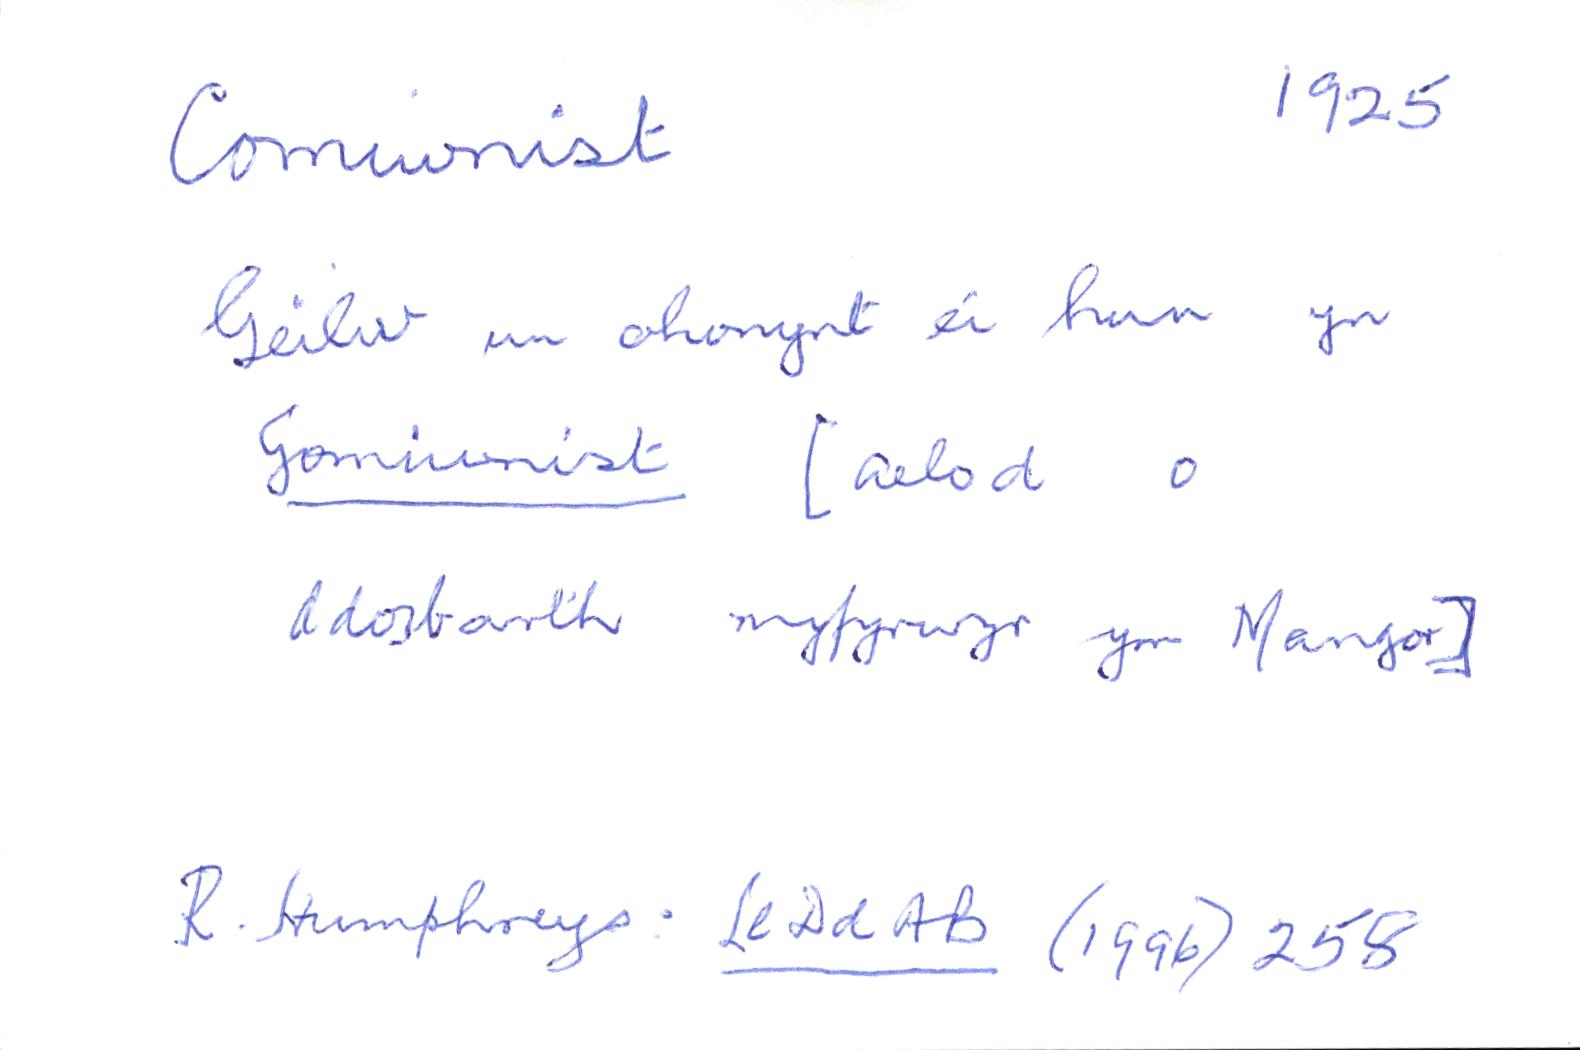 Comiwnist 1925
Geilw un ohonynt ei hun yn
Gomiwnist [aelod o
ddosbarth myfyrwyr ym Mangor]
R. Humphreys: Ll Dd A B (1996) 258